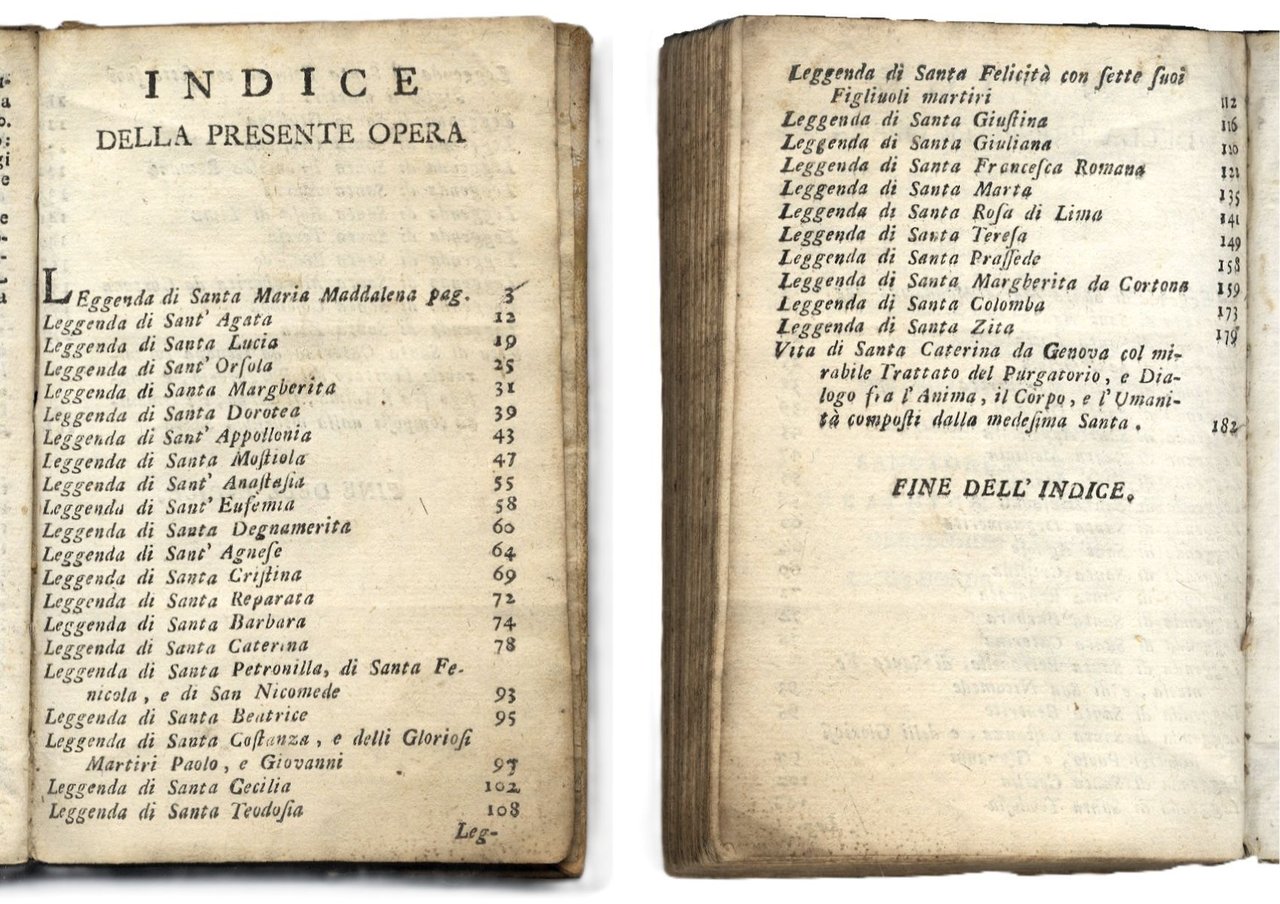 INDICE
DELLA PRESENTE OPERA
LEggenda di Santa Maria Maddalena pag. 3
Leggenda di Sant' Agata 12
Leggenda di Santa Lucia 19
Leggenda di Sant' Orſola 25
Leggenda di Santa Margherita 31
Leggenda di Santa Dorotea 39
Leggenda di Sant' Appollonia 43
Leggenda di Santa Moſtiola 47
Leggenda di Sant' Anaſtaſia 55
Leggenda di Sant' Eufemia 58
Leggenda di Santa Degnamerita 60
Leggenda di Sant' Agneſe 64
Leggenda di Santa Criſtina 69
Leggenda di Santa Reparata 72
Leggenda di Santa Barbara 74
Leggenda di Santa Caterina 78
Leggenda di Santa Petronilla, di Santa Fe-
nicola, e di San Nicomede 93
Leggenda di Santa Beatrice 95
Leggenda di Santa Coſtanza, e delli Glorioſi
Martiri Paolo, e Giovanni 97
Leggenda di Santa Cecilia 102
Leggenda di Santa Teodoſia 108
Leg-
Leggenda di Santa Felicità con ſette ſuoi
Figliuoli martiri 112
Leggenda di Santa Giuſtina 116
Leggenda di Santa Giuliana
Leggenda di Santa Franceſca Romana 121
Leggenda di Santa Marta 135
Leggenda di Santa Roſa di Lima 141
Leggenda di Santa Tereſa 149
Leggenda di Santa Praſſede 158
Leggenda di Santa Margherita da Cortona 159
Leggenda di Santa Colomba 173
Leggenda di Santa Zita 179
Vita di Santa Caterina da Genova col mi-
rabile Trattato del Purgatorio, e Dia-
logo fra l'Anima, il Corpo, e l'Umani-
tà compoſti dalla medeſima Santa. 182
FINE DELL' INDICE.